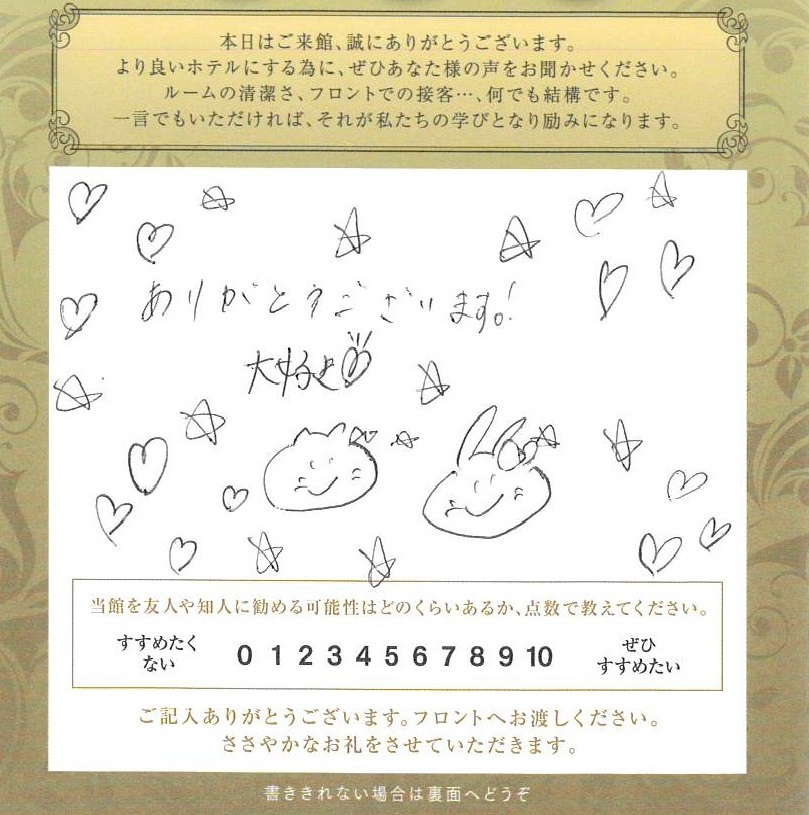 本日はご来館、誠にありがとうございます。
より良いホテルにする為に、ぜひあなた様の声をお聞かせください。
ルームの清潔さ、フロントでの接客…、何でも結構です。
一言でもいただければ、それが私たちの学びとなり励みになります。
ありがとうございます。!
大好き
当館を友人や知人に勧める可能性はどのくらいあるか、点数で教えてください。
すすめたく
ない
0 1 2 3 4 5 6 7 8 9 10
ぜひ
すすめたい
ご記入ありがとうございます。フロントへお渡しください。
ささやかなお礼をさせていただきます。
書ききれない場合は裏面へどうぞ